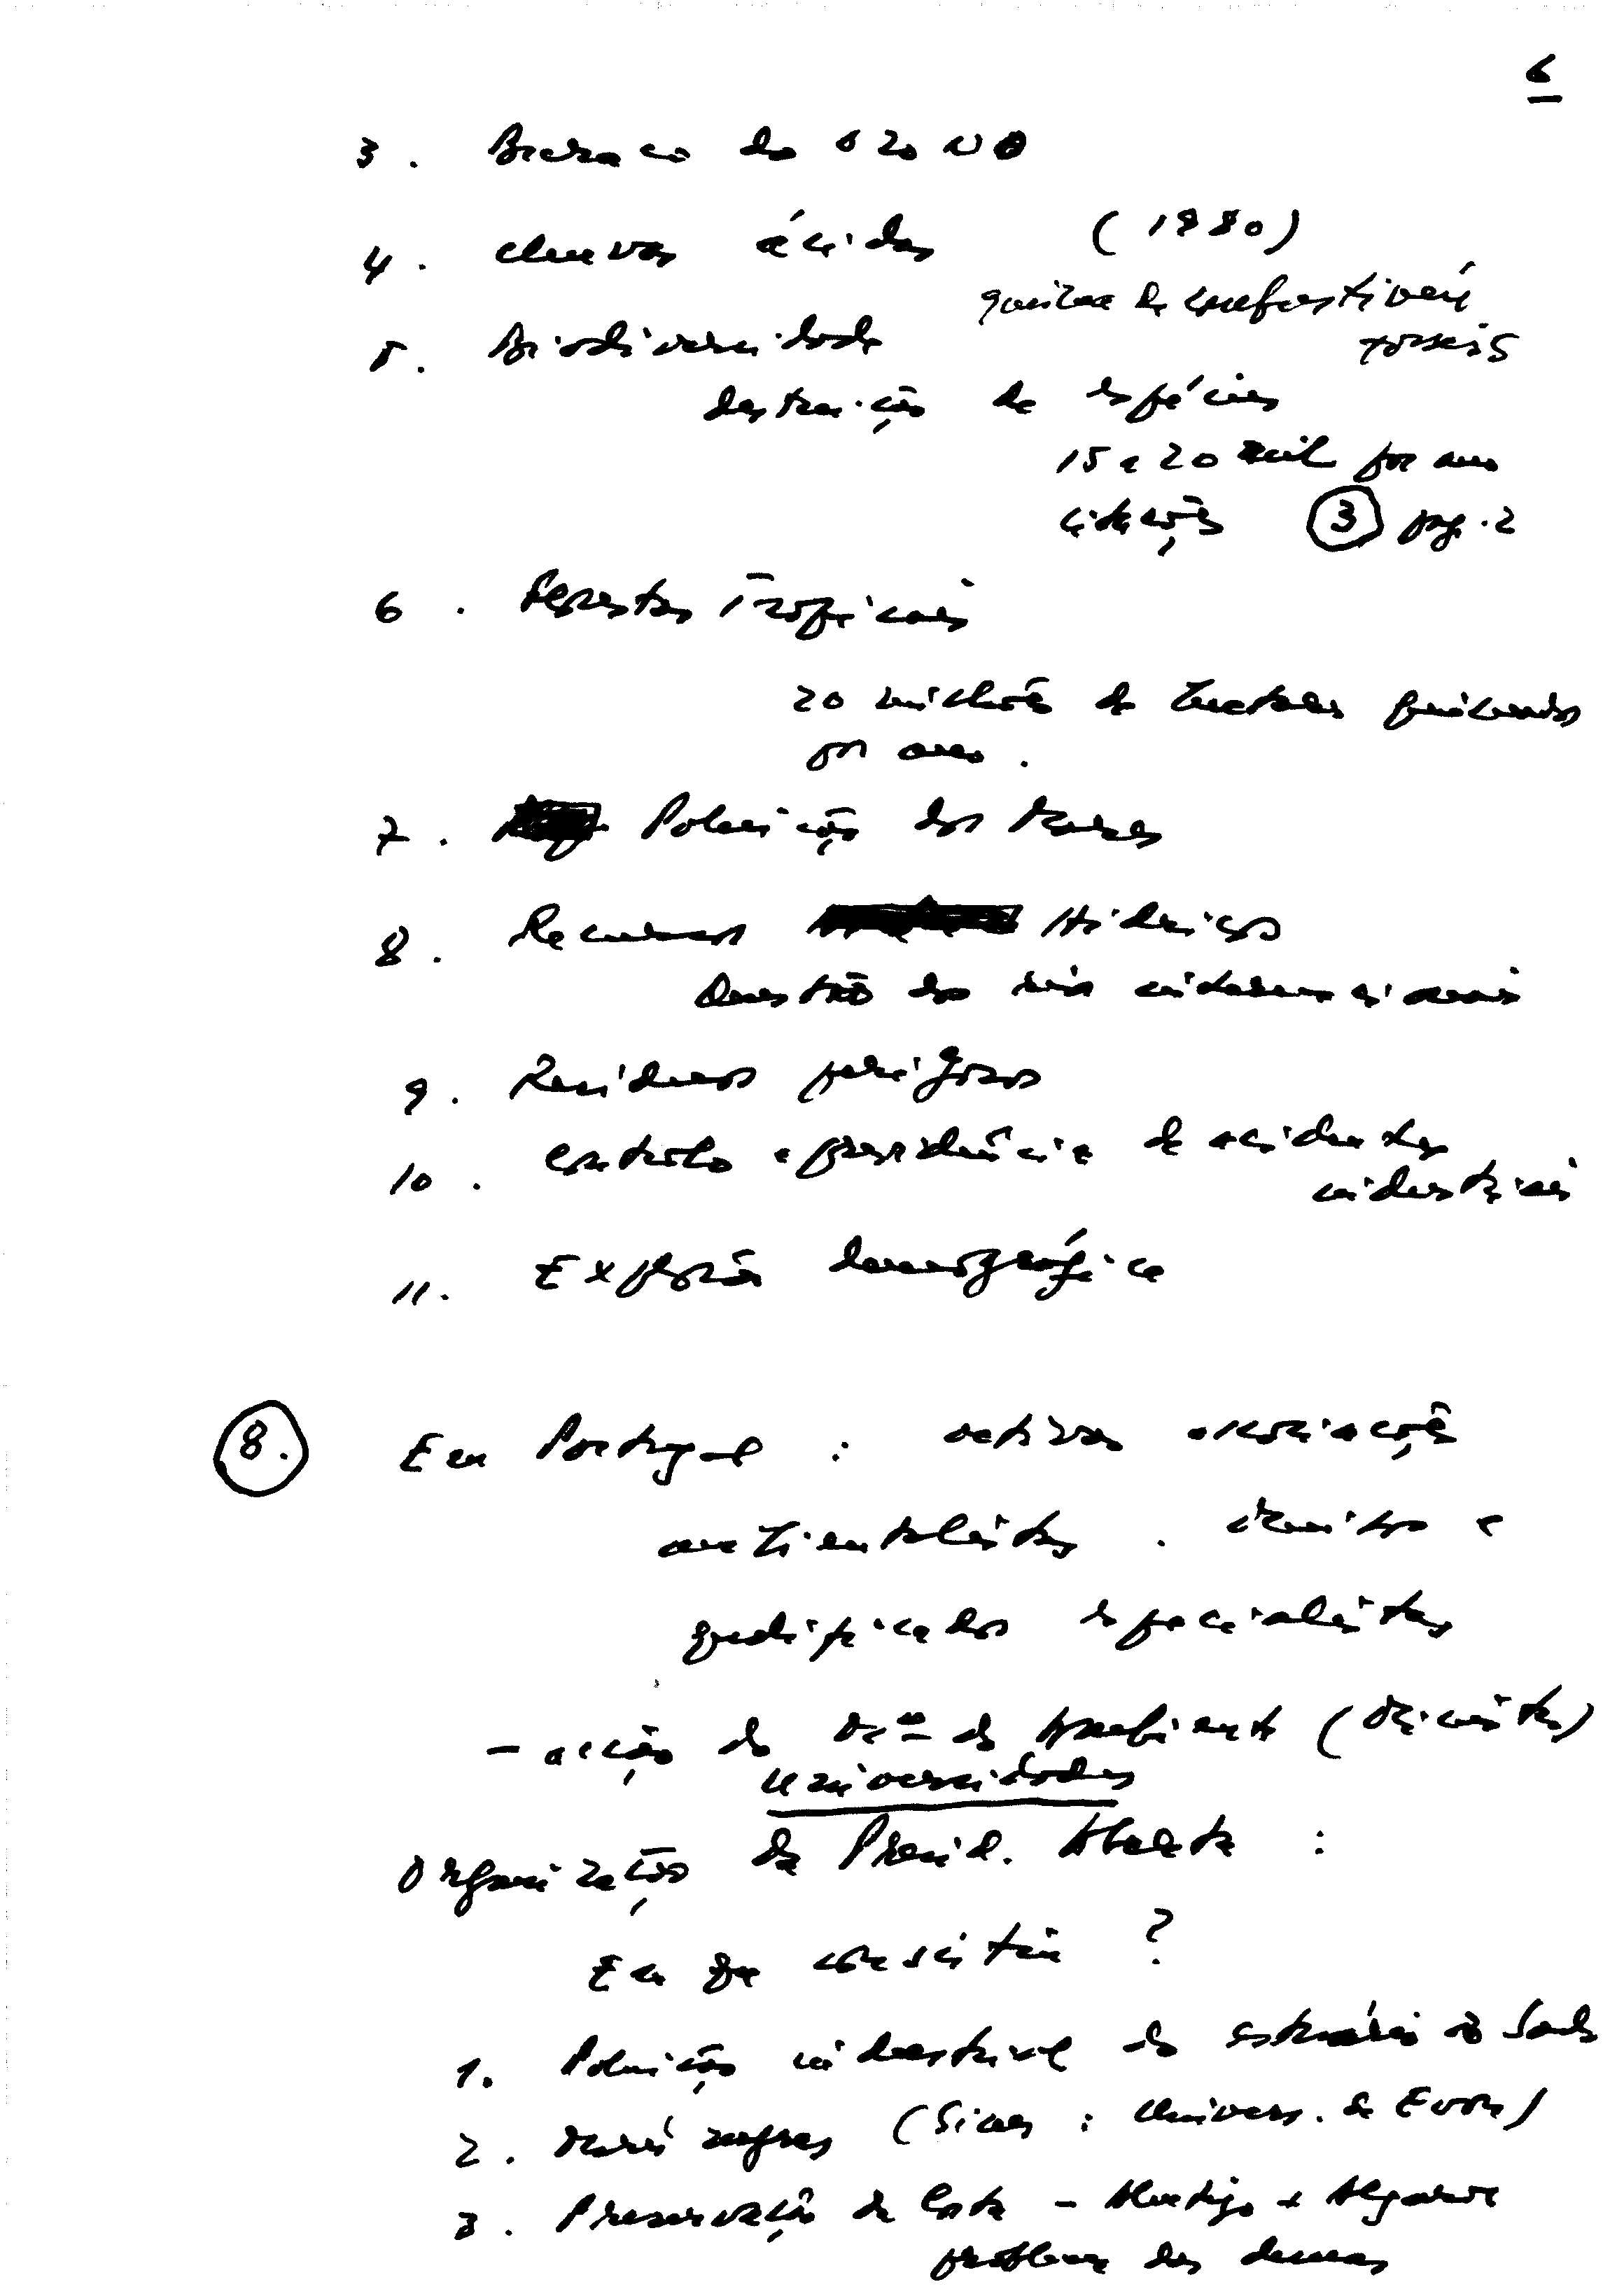 6
3. Buraco do Ozono
4. chuvas ácidas (1980)
queima de combustíveis
fósseis
5. Biodiversidade
destruição de espécies
15 a 20 mil por ano
citações 3 pag. 2
6. Florestas Tropicais
20 milhões de hectares queimados
por ano.
7. Poluição dos Mares
8. Recursos Hídricos
Questão dos rios internacionais
9. Resíduos perigosos
10. Controlo e previdência de acidentes
industriais
11. Explosão demográfica
8. Em Portugal: activas associações
ambientalistas. cientistas e
qualificados especialistas
- acção do Mº do Ambiente (Ministra)
Universidades
Organização da Presid. Aberta:
Em que consistiu?
1. Poluição industrial do estuário do Sado
2. Marés negras (Sines: Univers. de Evora)
3. Preservação da Costa - Alentejo e Algarve
problema das dunas